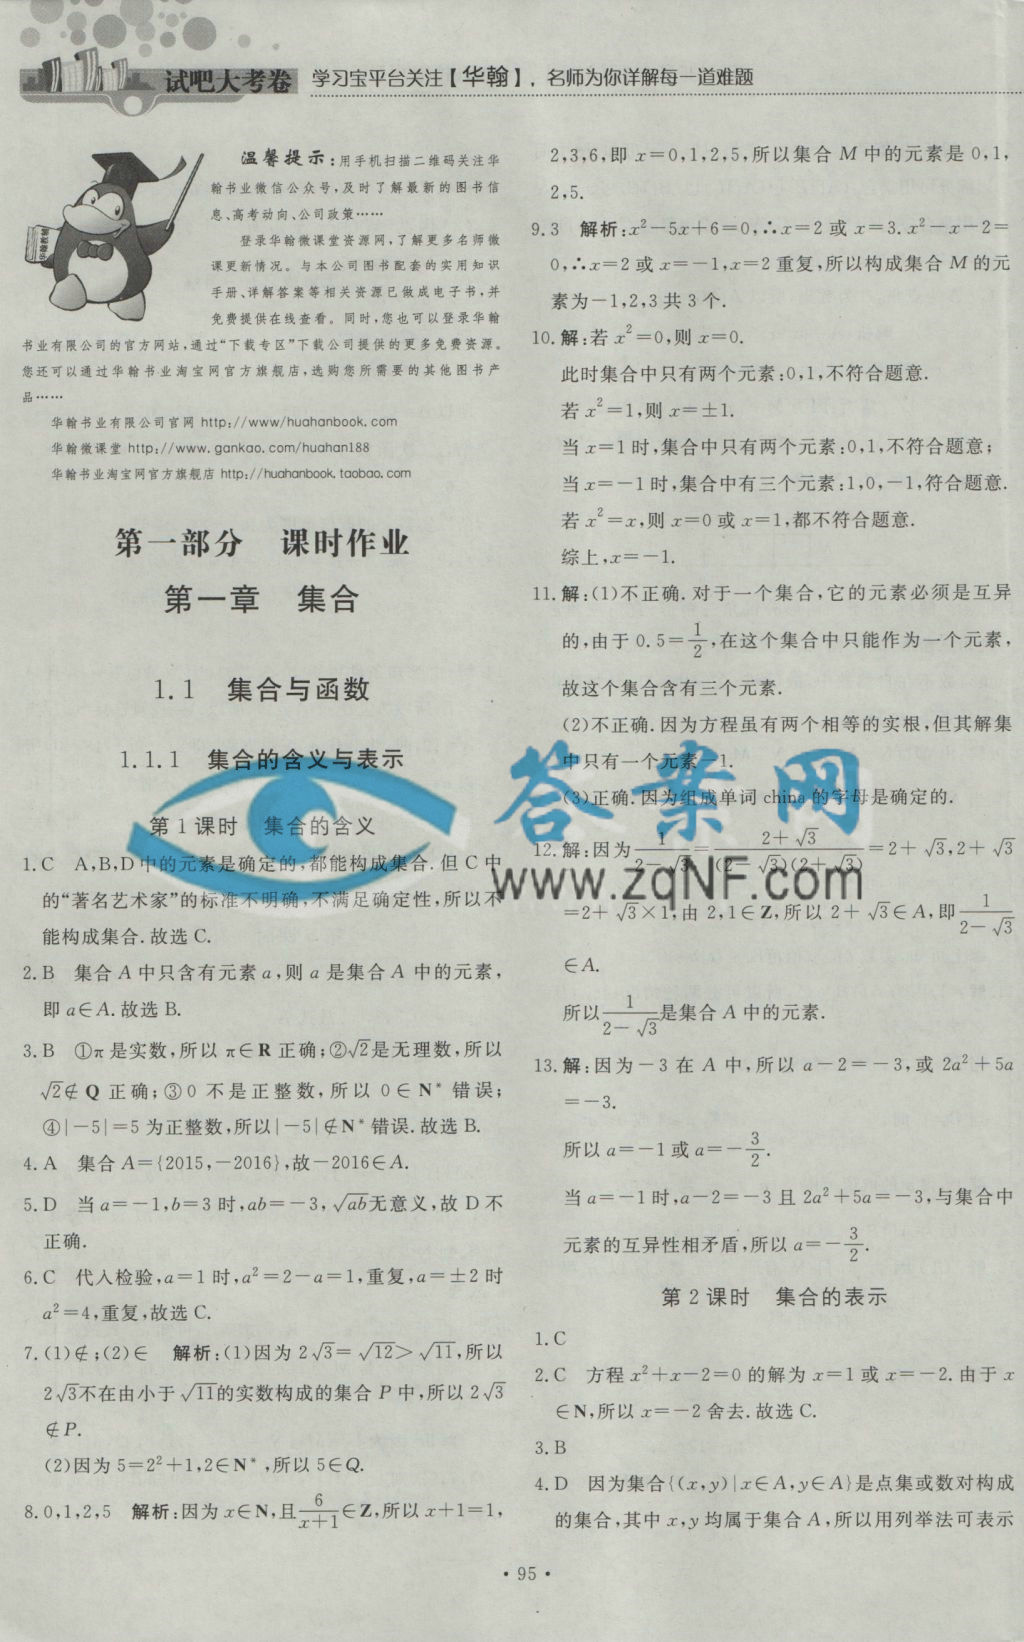 试吧大考卷 学习宝平台关注【华翰】，名师为你详解每一道难题
温馨提示:用手机扫描二维码关注华
翰书业微信公众号,及时了解最新的图书信
息、高考动向、公司政策……
登录华翰微课堂资源网,了解更多名师微
课更新情况。与本公司图书配套的实用知识
手册、详解答案等相关资源已做成电子书,并
免费提供在线查看。同时,您也可以登录华翰
书业有限公司的官方网站,通过“下载专区”下载公司提供的更多免费资源。
您还可以通过华翰书业淘宝网官方旗舰店,选购您所需要的其他图书产
品……
华翰书业有限公司官网 http://www/huahanbook.com
华翰微课堂 http://www.gankao.com/huahan188
华翰书业淘宝网官方旗舰店 http://huahanbook.taobao.com
第一部分 课时作业
第一章 集合
1.1 集合与函数
1.1.1 集合的含义与表示
第1课时 集合的含义
1.C A,B,D中的元素是确定的,都能构成集合.但C中
的“著名艺术家”的标准不明确,不满足确定性,所以不
能构成集合.故选C.
2.B 集合A中只含有元素a,则a是集合A中的元素,
即a∈A.故选B.
3.B ①π是实数,所以π∈R正确;②√2是无理数,所以
√2∉Q正确;③0不是正整数,所以0∈N*错误;
④|-5|=5为正整数,所以|-5|∉N*错误.故选B.
4.A 集合A={2015,-2016},故-2016∈A.
5.D 当a=-1,b=3时,ab=-3,√ab无意义,故D不
正确.
6.C 代入检验,a=1时,a²=2-a=1,重复,a=±2时
a²=4,重复,故选C.
7.(1)∉;(2)∈ 解析:(1)因为2√3=√12>√11,所以
2√3不在由小于√11的实数构成的集合P中,所以2√3
∉P.
(2)因为5=2²+1,2∈N*,所以5∈Q.
8.0,1,2,5 解析:因为x∈N,且6/(x+1)∈Z,所以x+1=1,
2,3,6,即x=0,1,2,5,所以集合M中的元素是0,1,
2,5.
9.3 解析:x²-5x+6=0,∴x=2或x=3.x²-x-2=
0,∴x=2或x=-1,x=2重复,所以构成集合M的元
素为-1,2,3共3个.
10.解:若x²=0,则x=0.
此时集合中只有两个元素:0,1,不符合题意.
若x²=1,则x=±1.
当x=1时,集合中只有两个元素:0,1,不符合题意;
当x=-1时,集合中有三个元素:1,0,-1,符合题意.
若x²=x,则x=0或x=1,都不符合题意.
综上,x=-1.
11.解:(1)不正确.对于一个集合,它的元素必须是互异
的,由于0.5=1/2,在这个集合中只能作为一个元素,
故这个集合含有三个元素.
(2)不正确.因为方程虽有两个相等的实根,但其解集
中只有一个元素-1.
(3)正确.因为组成单词china的字母是确定的.
12.解:因为1/(2-√3)=(2+√3)/((2-√3)(2+√3))=2+√3,2+√3
=2+√3×1,由2,1∈Z,所以2+√3∈A,即1/(2-√3)
∈A.
所以1/(2-√3)是集合A中的元素.
13.解:因为-3在A中,所以a-2=-3,或2a²+5a
=-3.
所以a=-1或a=-3/2.
当a=-1时,a-2=-3且2a²+5a=-3,与集合中
元素的互异性相矛盾,所以a=-3/2.
第2课时 集合的表示
1.C
2.C 方程x²+x-2=0的解为x=1或x=-2.由于x
∈N,所以x=-2舍去.故选C.
3.B
4.D 因为集合{(x,y)|x∈A,y∈A}是点集或数对构成
的集合,其中x,y均属于集合A,所以用列举法可表示
• 95 •
答案网
www.zqNF.com